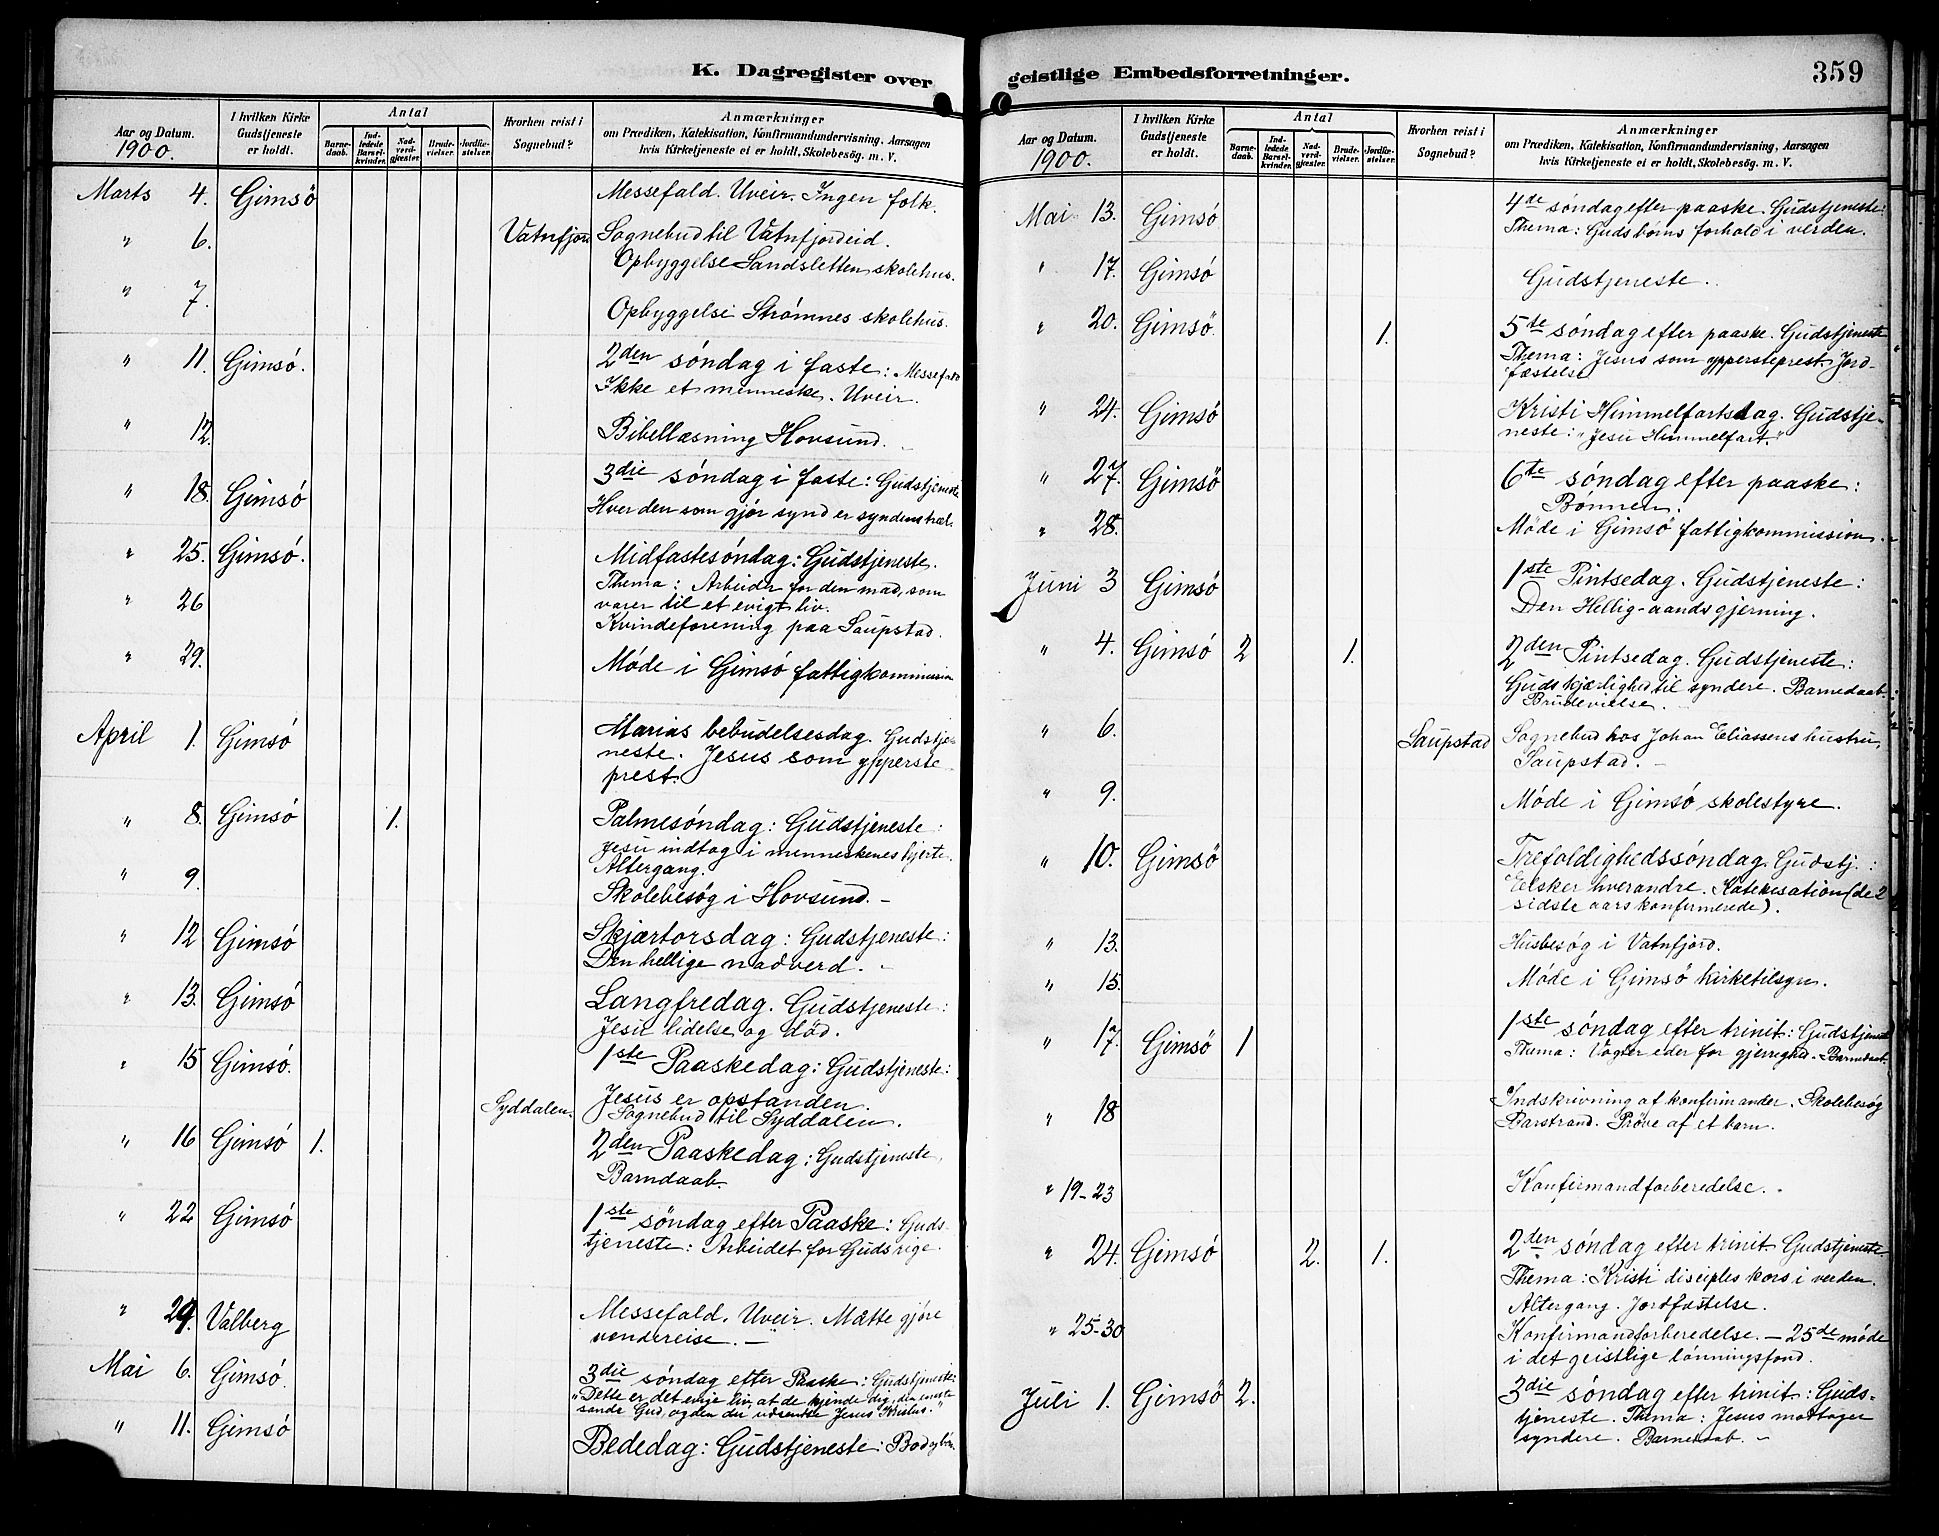 K. Dagregister over
Aar og Datum.
1900.
I hvilken Kirke Gudstjeneste er holdt.
Antal
Barnedaab.
Indledede Barselkvinder.
Nadverdgjester.
Brudevielser.
Jordfæstelser.
Hvorhen reist i Sognebud?
Anmærkninger
om Prædiken, Katekisation, Konfirmandundervisning, Aarsagen
hvis Kirketjeneste ei er holdt, Skolebesög. m. V.
Marts 4. Gimsö Messefald. Uveir. Ingen folk.
" 6. Vatnfjord Sognebud til Vatnfjordeid.
Opbyggelse Sandsletten skolehus.
" 7. Opbyggelse Strømnes skolehus.
" 11. Gimsó. 2den søndag i faste: Messefald
Ikke et menneske. Uveir.
" 12. Bibellæsning Hovsund.
" 18. Gimsó 3die søndag i faste: Gudstjeneste
Hver den som gjør synd er syndens træl.
" 25. Gimsó. Midfastesóndag: Gudstjeneste.
Thema: Arbeider for den mad, som
varer til et evigt liv.
" 26 Kvindeforening paa Saupstad.
" 29. Móde i Gimsó fattigkommission
April 1. Gimsó Marias bebudelsesdag. Gudstje-
neste. Jesus som ypperste
prest.
" 8. Gimsó 1. Palmesóndag: Gudstjeneste:
Jesu indtog i menneskenes hjerte.
Altergang.
" 9. Skolebesøg i Hovsund. -
" 12 Gimsó Skjærtorsdag: Gudstjeneste:
Den hellige nadverd. -
" 13. Gimsó Langfredag. Gudstjeneste:
Jesu lidelse og död.
" 15 Gimsó. 1ste Paaskedag: Gudstjeneste:
Jesus er opstanden.
Syddalen. Sognebud til Syddalen.
" 16 Gimsó 1. 2den Paaskedag: Gudstjeneste,
Barndaab.
" 22 Gimsó 1ste söndag efter Paaske: Guds-
tjeneste: Arbeidet for Guds rige.
" 29. Valberg Messefald. Uveir. Måtte gjóre
vendereise. -"
Mai 6. Gimsó. 3die sóndag efter Paaske: Gudstjeneste:
"Dette er det evige liv, at de kjende dig, den eneste
sande Gud, og den du udsendte Jesus Kristus."
" 11. Gimsó Bededag: Gudstjeneste:
geistlige Embedsforretninger.
359
Aar og Datum.
1900.
I hvilken Kirke Gudstjeneste er holdt.
Antal
Barnedaab.
Indledede Barselkvinder.
Nadverdgjester.
Brudevielser.
Jordfæstelser.
Hvorhen reist i Sognebud?
Anmærkninger
om Prædiken, Katekisation, Konfirmandundervisning, Aarsagen
hvis Kirketjeneste ei er holdt, Skolebesög. m. V.
Mai 13. Gimsó 4de søndag efter paaske. Gudstjeneste:
Thema: Gudsbørns forhold i verden.
" 17. Gimsó Gudstjeneste.
" 20. Gimsö. 1. 5te sóndag efter paaske. Gudstjeneste
Thema: Jesus som ypperstepræst. Jord-
fæstelse
" 24. Gimsó Kristi Himmelfartsdag. Gudstje-
neste: "Jesu Himmelfart."
" 27. Gimsö 6te sóndag efter paaske:
Bønnen.
" 28. Móde i Gimsó fattigkommission.
Juni 3 Gimsó 1ste Pintsedag. Gudstjeneste:
Den Hellig-aands gjerning.
" 4. Gimsó 2 1. 2den Pintsedag. Gudstjeneste:
Guds kjærlighed til syndere. Barnedaab.
Brudevielse.
" 6. Saupstad Sognebud hos Johan Eliassens hustru,
Saupstad. -
" 9. Móde i Gimsó skolestyre.
" 10. Gimsö Trefoldighedssóndag. Gudstj.:
Elsker hverandre. Katekisation (de 2
sidste aars konfirmerede).
" 13. Husbesøg i Vatnfjord.
" 15. Móde i Gimsö kirketilsyn.
" 17. Gimsö 1 1ste sóndag efter trinit: Gudstjeneste
Thema: Vogter eder for gjerrighed. Barnedaab.
" 18 Indskrivning af konfirmander. Skolebesøg
Barstrand. Prøve af et barn.
" 19-23 Konfirmandforberedelse.
" 24. Gimsó 2. 1. 2den sóndag efter trinit. Gudstjeneste.
Thema: Kristi disciples kors i verden.
Altergang. Jordfæstelse.
" 25-30 Konfirmandforberedelse. - 25de móde
i det geistlige lónningsfond.
Juli 1. Gimsó 2. 3die sóndag efter trinit: Guds-
tjeneste. Thema: Jesus mottager
syndere. Barnedaab. -